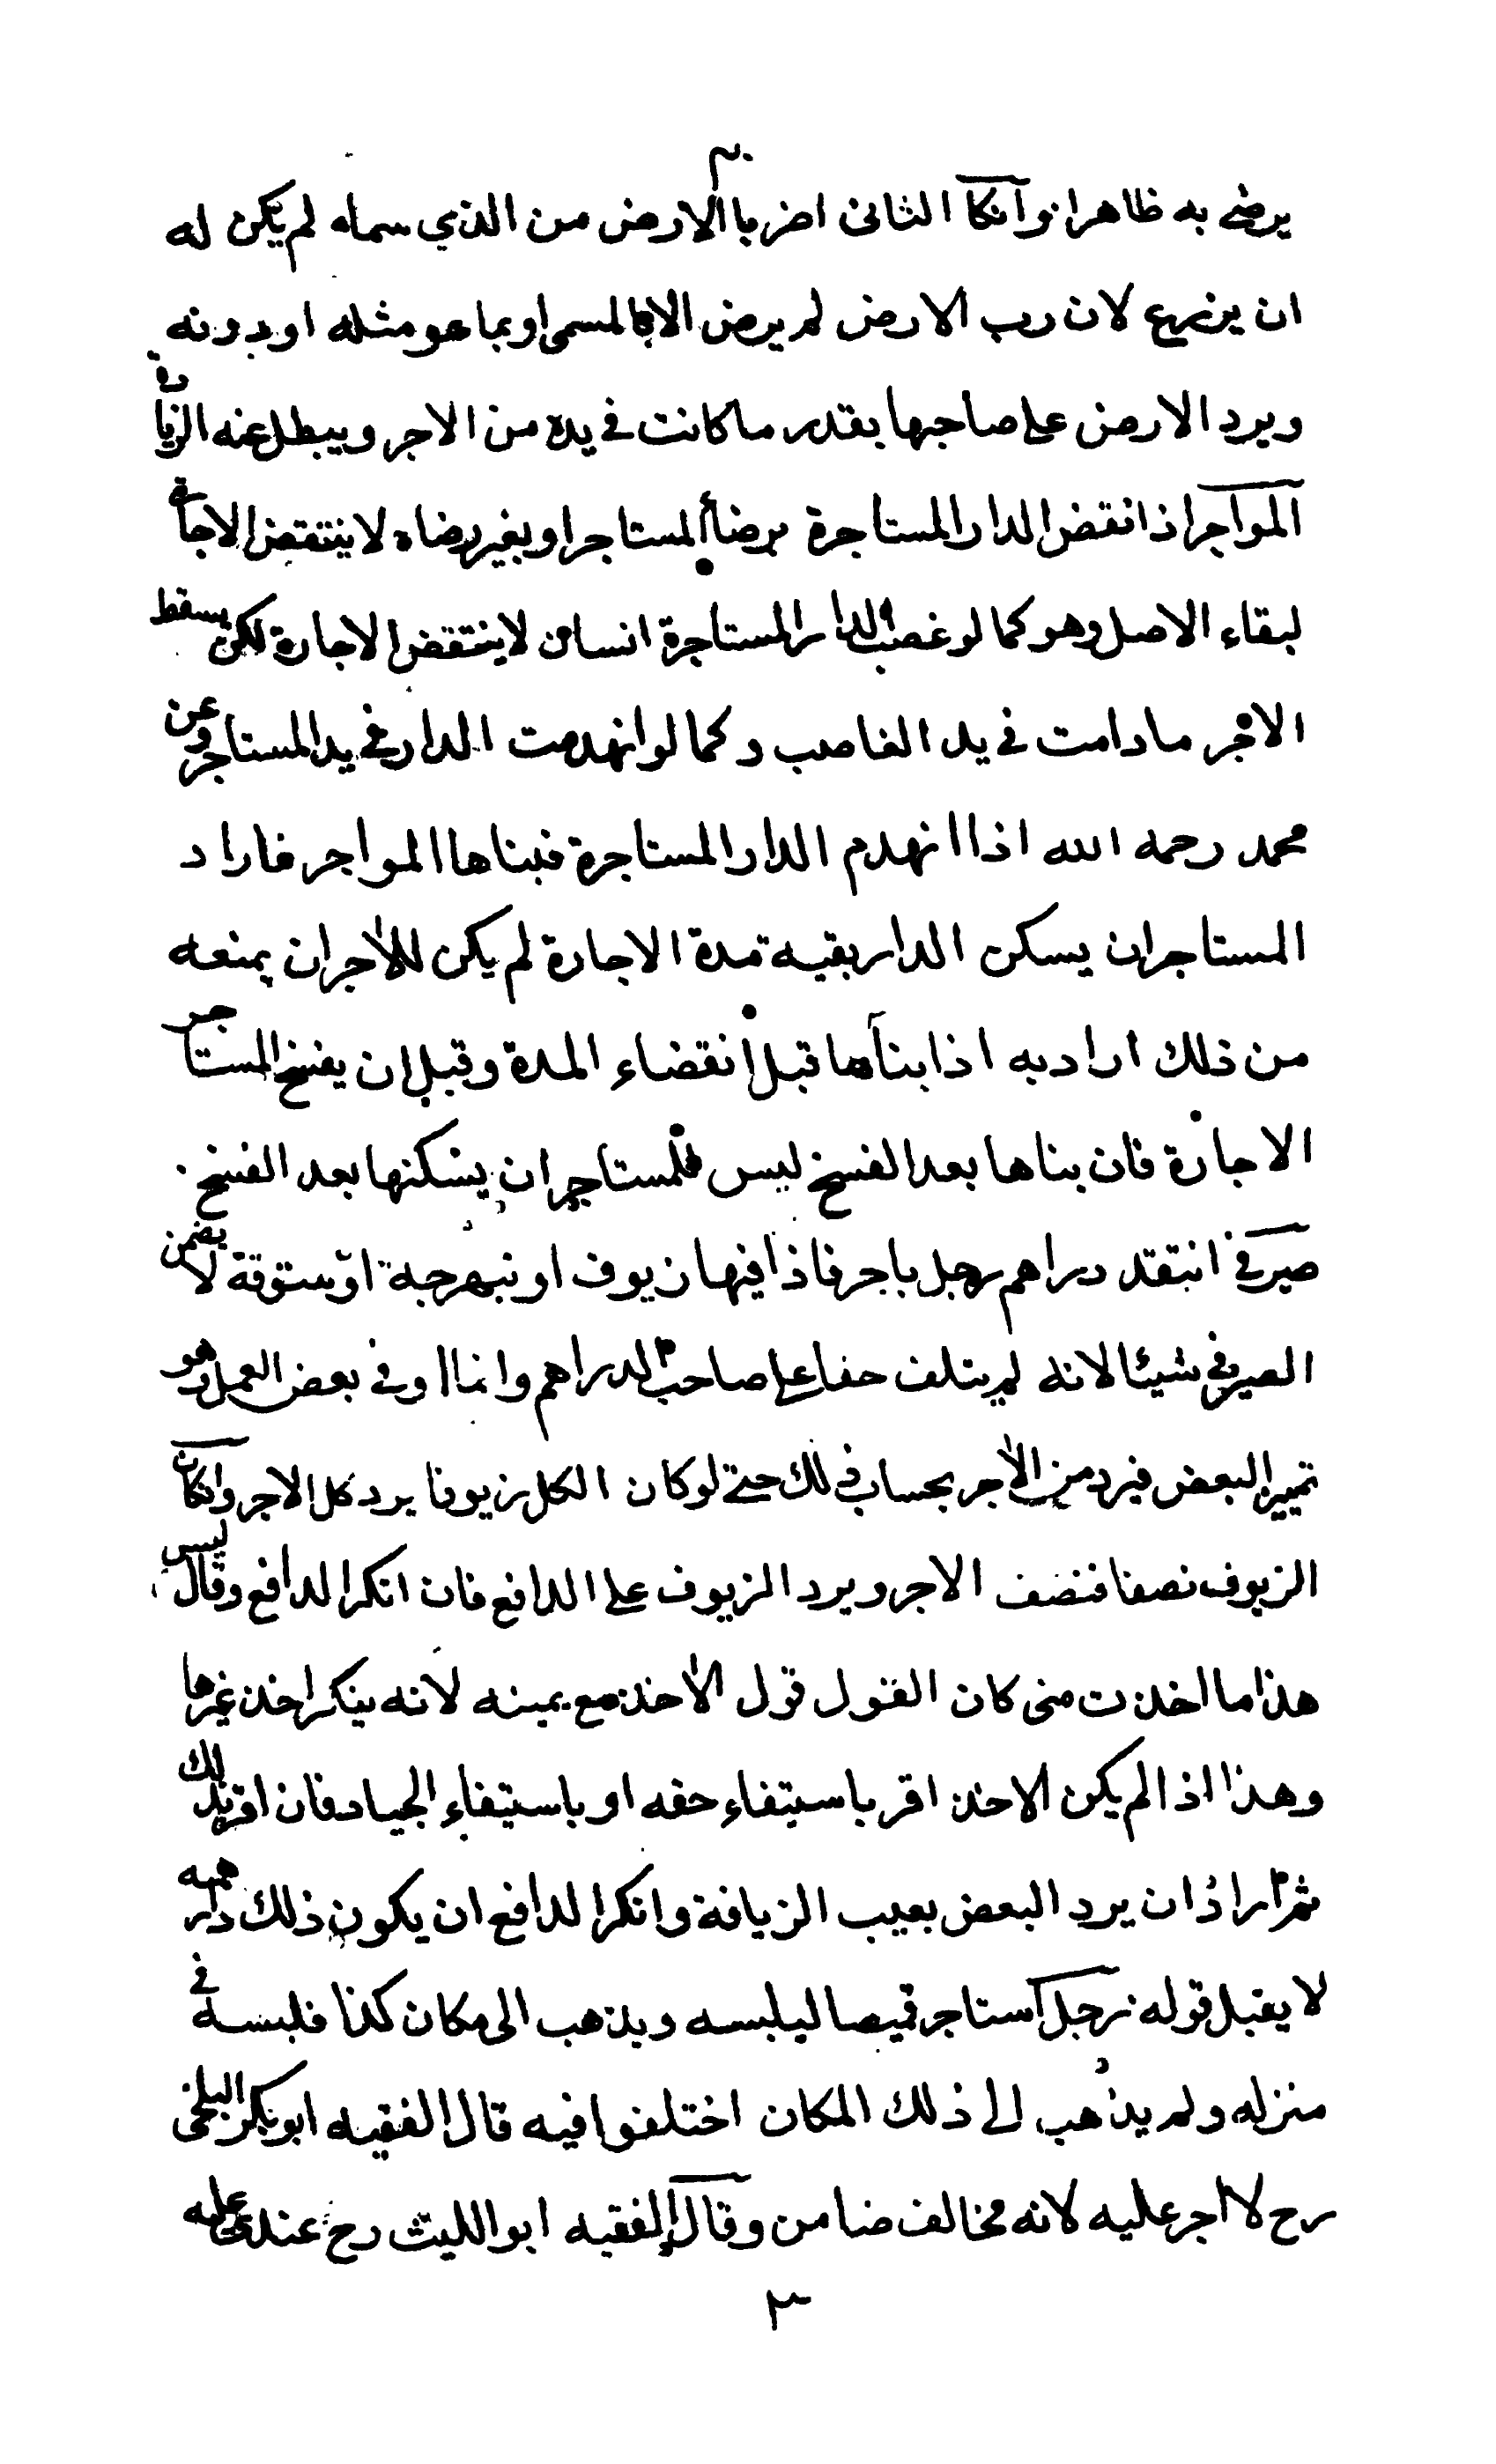 ٣٠
يرضى به ظاهرا وانكا الثانى اضر باالارض من الذي سماه لم يكن له
ان يزرع لان رب الارض لم يرض الابالمسمى اوبما هو مثله او بدونه
ويرد الارض على صاحبها بقدر ما كانت في يده من الاجر ويبطل عنه الزيادة
المواجر اذا نقض الدار المستاجرة برضاالمستاجر او بغير رضاه لا ينتقض الاجارة
لبقاء الاصل وهو كما لو غصب الدار المستاجرة انسان لا ينتقض الاجارة لكن يسقط
الاجر مادامت في يد الغاصب وكما لو انهدمت الدار في يد المستاجر وعن
محمد رحمه الله اذا انهدم الدار المستاجرة فبناها المواجر فاراد
المستاجر ان يسكن الدار بقيه مدة الاجارة لم يكن للاجر ان يمنعه
من ذلك اراد به اذا بناها قبل انقضاء المدة وقبل ان يفسخ المستاجر
الاجارة فان بناها بعد الفسخ ليس للمستاجر ان يسكنها بعد الفسخ
صيرفي انتقد دراهم رجل باجر فاذا فيها زيوف او نبهرجة او ستوقة لا يضمن
الصيرفي شيئا لانه لم يتلف حقا على صاحب الدراهم وانما اوفى بعض العمل وهو
تمييز البعض فيرد من الاجر بحساب ذلك حتى لو كان الكل زيوفا يرد كل الاجر وانكان
الزيوف نصفا فنصف الاجر ويرد الزيوف على الدافع فان انكر الدافع وقال ليس
هذا ما اخذت منى كان القول قول الاخذ مع يمينه لانه ينكر اخذ غيرها
وهذا اذا لم يكن الاخذ اقر باستيفاء حقه او باستيفاء الجياد فان اقر بذلك
ثم اراد ان يرد البعض بعيب الزيافة وانكر الدافع ان يكون ذلك دراهمه
لا يقبل قوله رجل استاجر قميصا ليلبسه ويذهب الى مكان كذا فلبسه في
منزله ولم يذهب الى ذلك المكان اختلفوا فيه قال الفقيه ابو بكر البلخى
رح لا اجر عليه لانه مخالف ضامن وقال الفقيه ابو الليث رح عندى عليه
٣